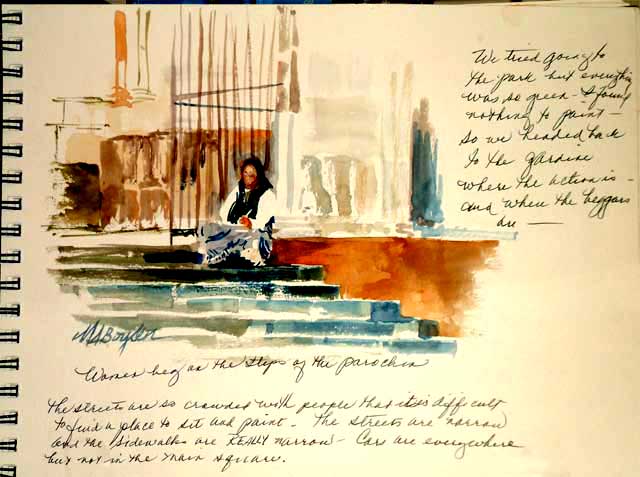 We tried going to
the park but everything
was so green - I found
nothing to paint -
So we headed back
to the
where the action is -
and where the beggars
are -
MABoylen
Women beg on the steps of the parochia
the streets are so crowded with people that it is difficult
to find a place to sit and paint. The streets are narrow
and the sidewalks are REALLY narrow - Cars are everywhere
but not in the main square.